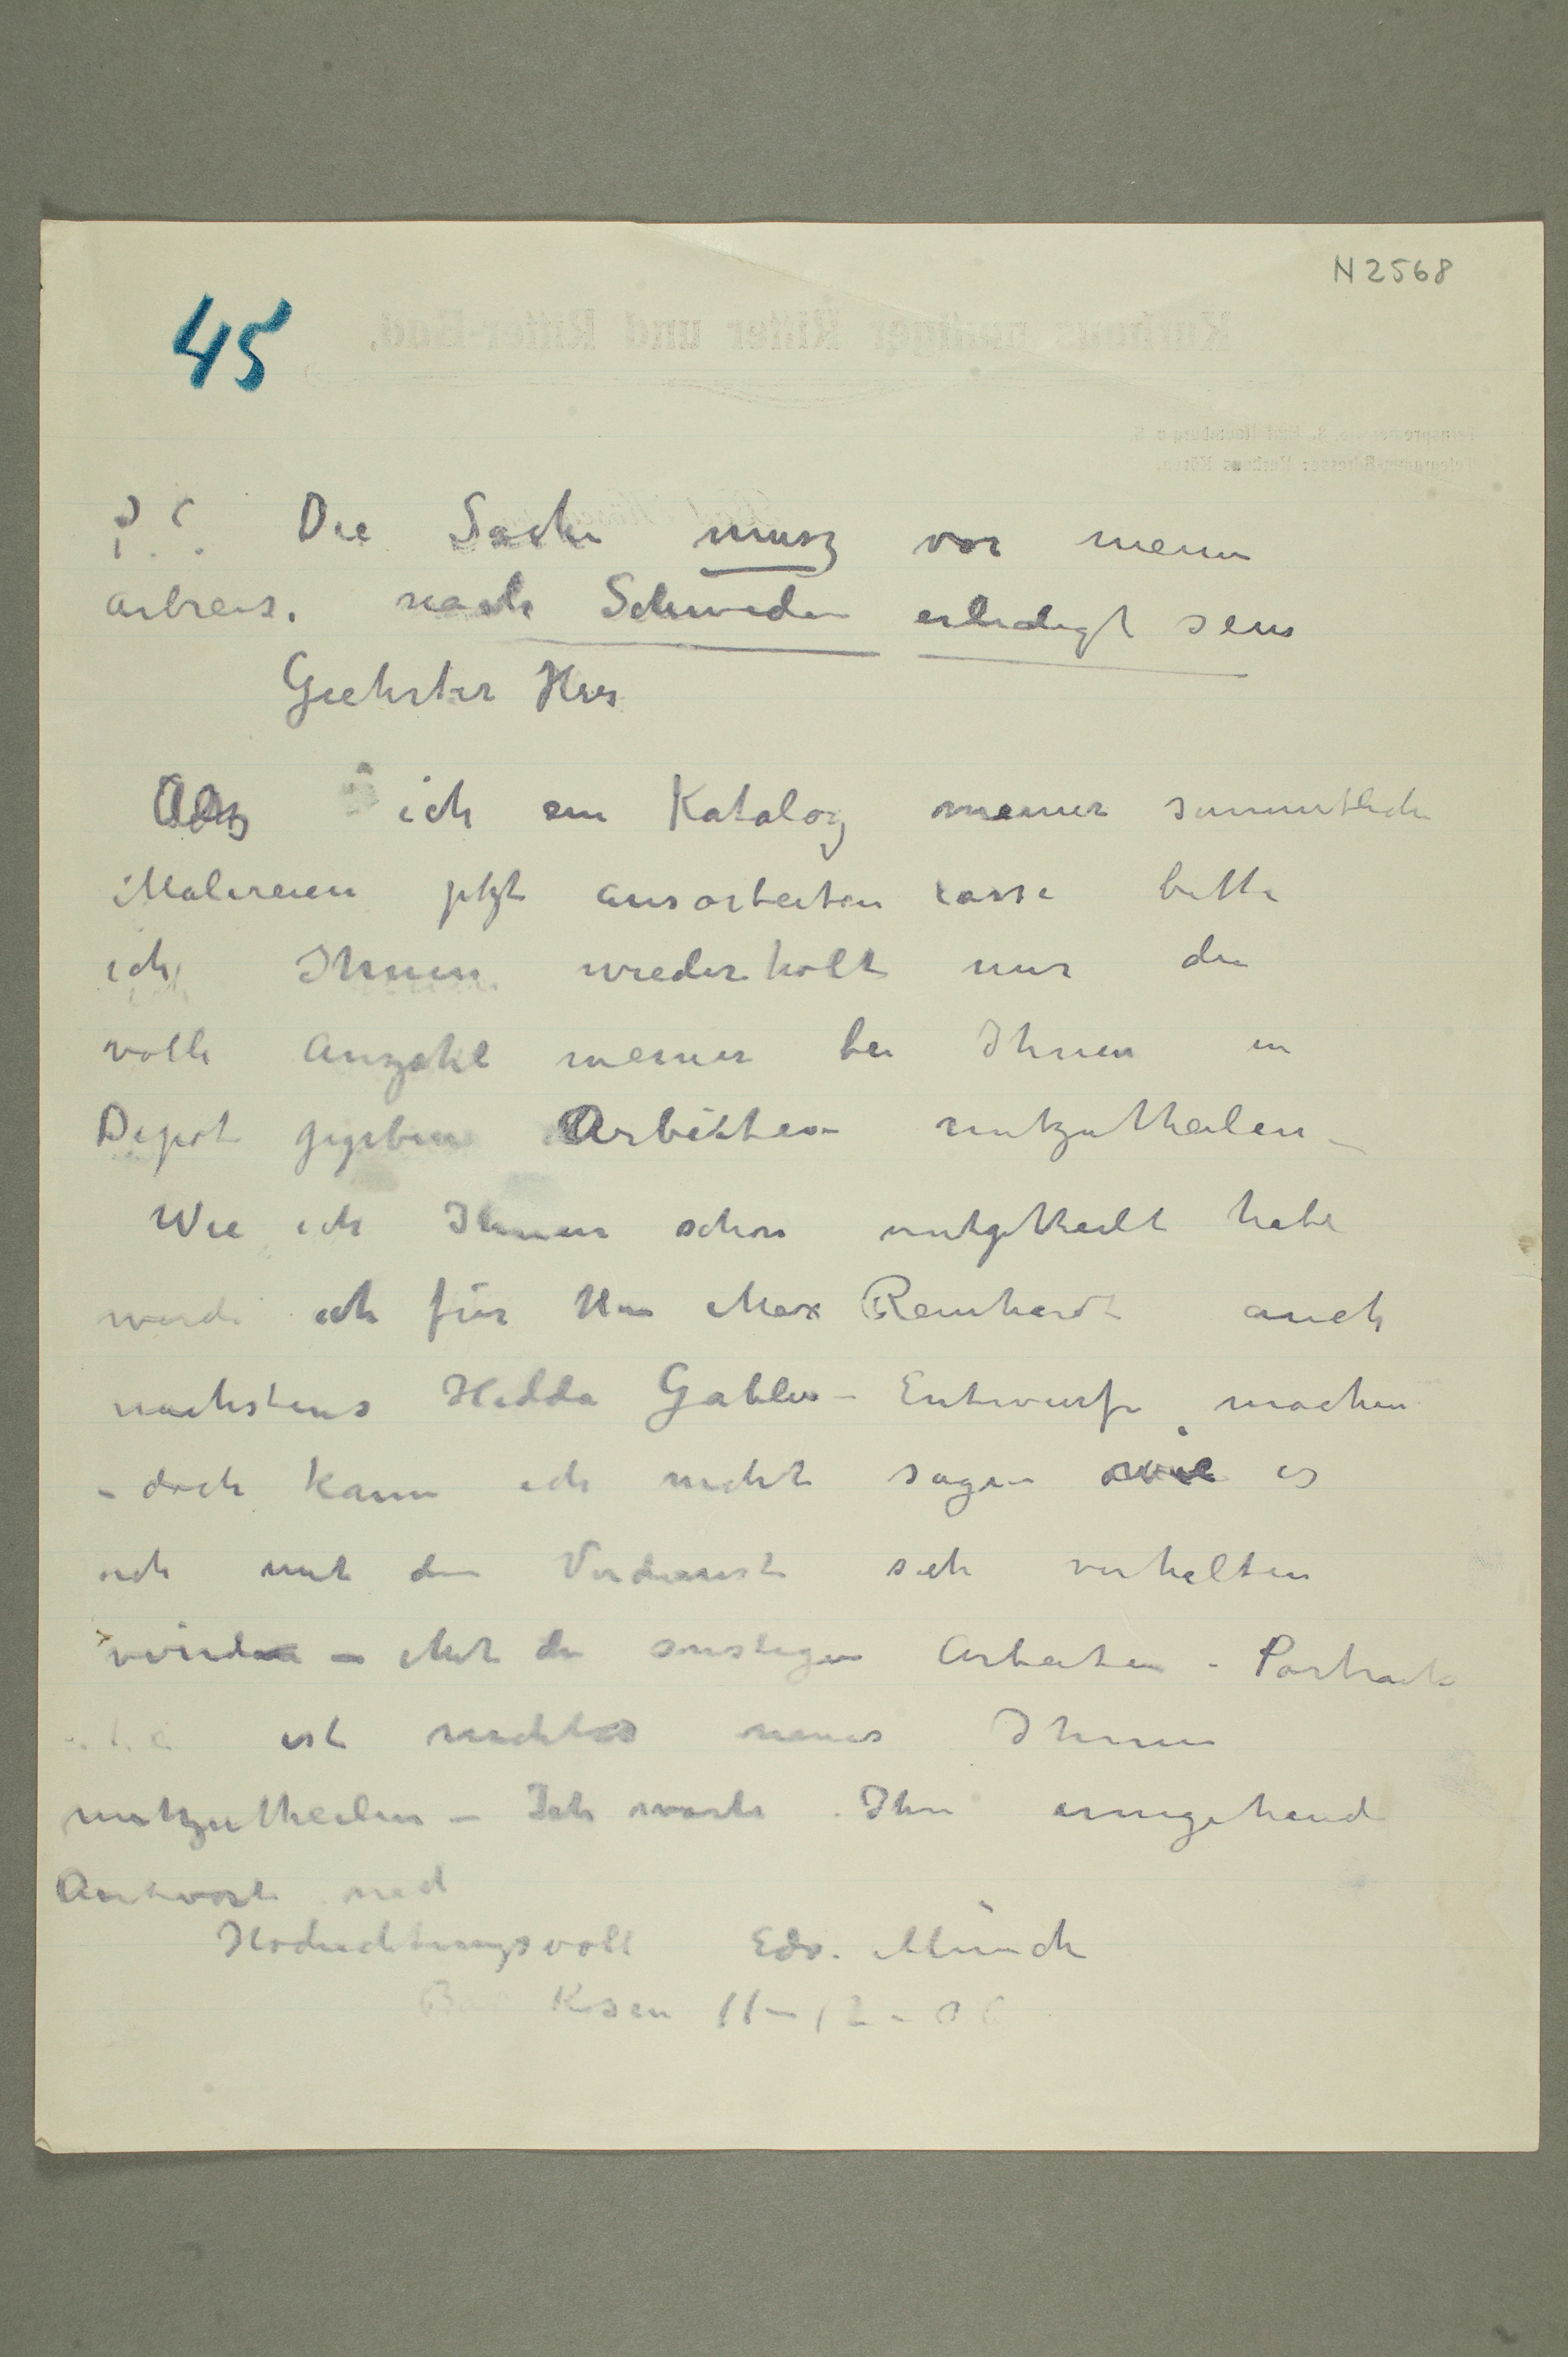 N 2568
45
P.S. Die Sache musz vor meine
Abreis. nach Schweden erledigt sein
Geehrter Herr
Als ich ein Katalog meiner sammtliche
Malereien jetzt ausarbeiten lasse bitte
ich Ihnen wiederholt mir die
volle Anzahl meiner bei Ihnen in
Depot gegebene Arbeiten mitzutheilen –
Wie ich Ihnen schon mitgetheilt habe
werde ich für Hrn Max Reinhardt auch
nachstens Hedda Gabler – Entwurfe machen
– doch kann ich nicht sagen wie es
sich mit den Verdienste sich verhalten
würde – Mit die sonstigen Arbeiten – Portraite
ist nichts neues Ihnen
mitzutheilen – Ich warte Ihre umgehend
Antwort und
Hochachtungsvoll Edv. Münch
Bad Kosen 11–12–06